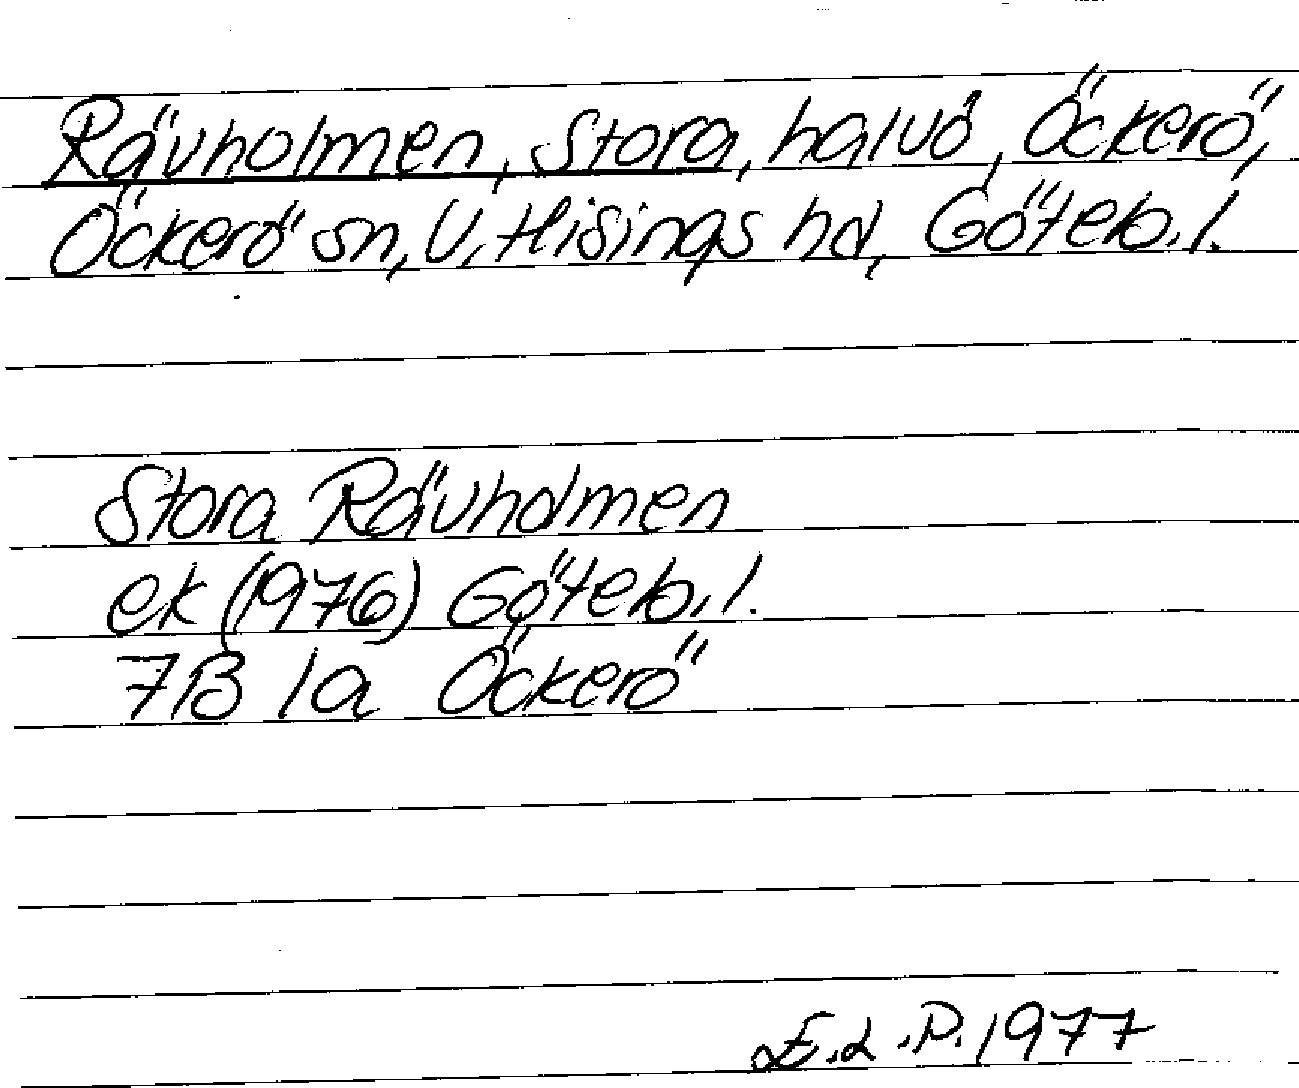 Rävholmen, Stora, halvö, Öckerö,
Öckerö sn, V. Hisings hd, Göteb. l.
Stora Rävholmen
ek (1976) Göteb. l.
7B 1a Öckerö
E.L.P. 1977